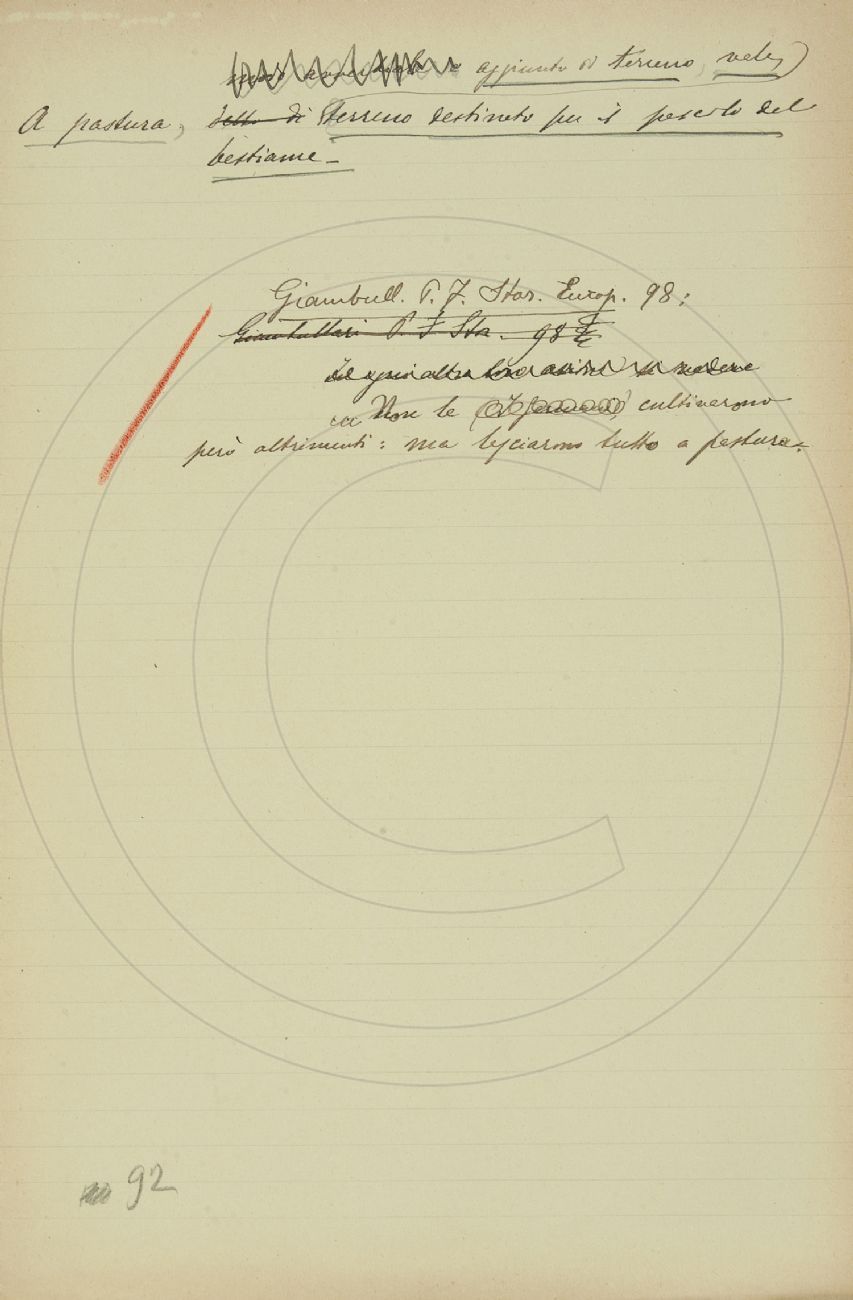 aggiunto di terreno, vale,)
A pastura, detto di Terreno destinato per il pascolo del
bestiame.—
Giambull. P. F. Stor. Europ. 98:
Giambullari P. F. Sto. 98
Non le cultivarono
però altrimenti: ma lasciarono tutto a pastura.
92